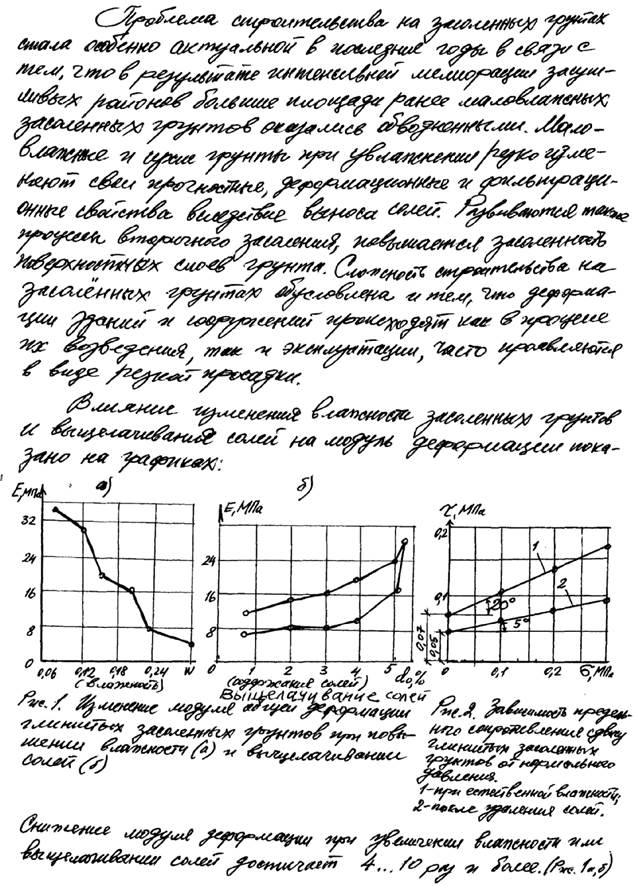 Проблема строительства на засоленных грунтах
стала особенно актуальной в последние годы в связи с
тем, что в результате интенсивной мелиорации засуш-
ливых районов большие площади ранее маловлажных
засоленных грунтов оказались обводненными. Мало-
влажные и сухие грунты при увлажнении резко изме-
няют свои прочностные, деформационные и фильтраци-
онные свойства вследствие выноса солей. Развиваются также
процессы вторичного засоления, повышается засоленность
поверхностных слоев грунта. Сложность строительства на
засолённых грунтах обусловлена и тем, что деформа-
ции зданий и сооружений происходят как в процессе
их возведения, так и эксплуатации, часто проявляются
в виде резкой просадки.
Влияние изменения влажности засоленных грунтов
и выщелачивания солей на модуль деформации пока-
зано на графиках:
E, МПа а)
32
24
16
8
0,06 0,12 0,18 0,24 W
(влажность)
б)
E, МПа
24
16
8
0 1 2 3 4 5 d₀,%
(содержания солей)
Выщелачивание солей
τ, МПа
0,2
0,1
0,07
0,05
1
2
20°
5°
0,1 0,2 σ, МПа
Рис. 1. Изменение модуля общей деформации
глинистых засоленных грунтов при повы-
шении влажности (а) и выщелачивании
солей (б)
Рис. 2. Зависимость предель-
ного сопротивления сдвигу
глинистых засоленных
грунтов от нормального
давления.
1-при естественной влажности;
2-после удаления солей.
Снижение модуля деформации при увеличении влажности или
выщелачивании солей достигает 4...10 раз и более. (Рис. 1а, б)